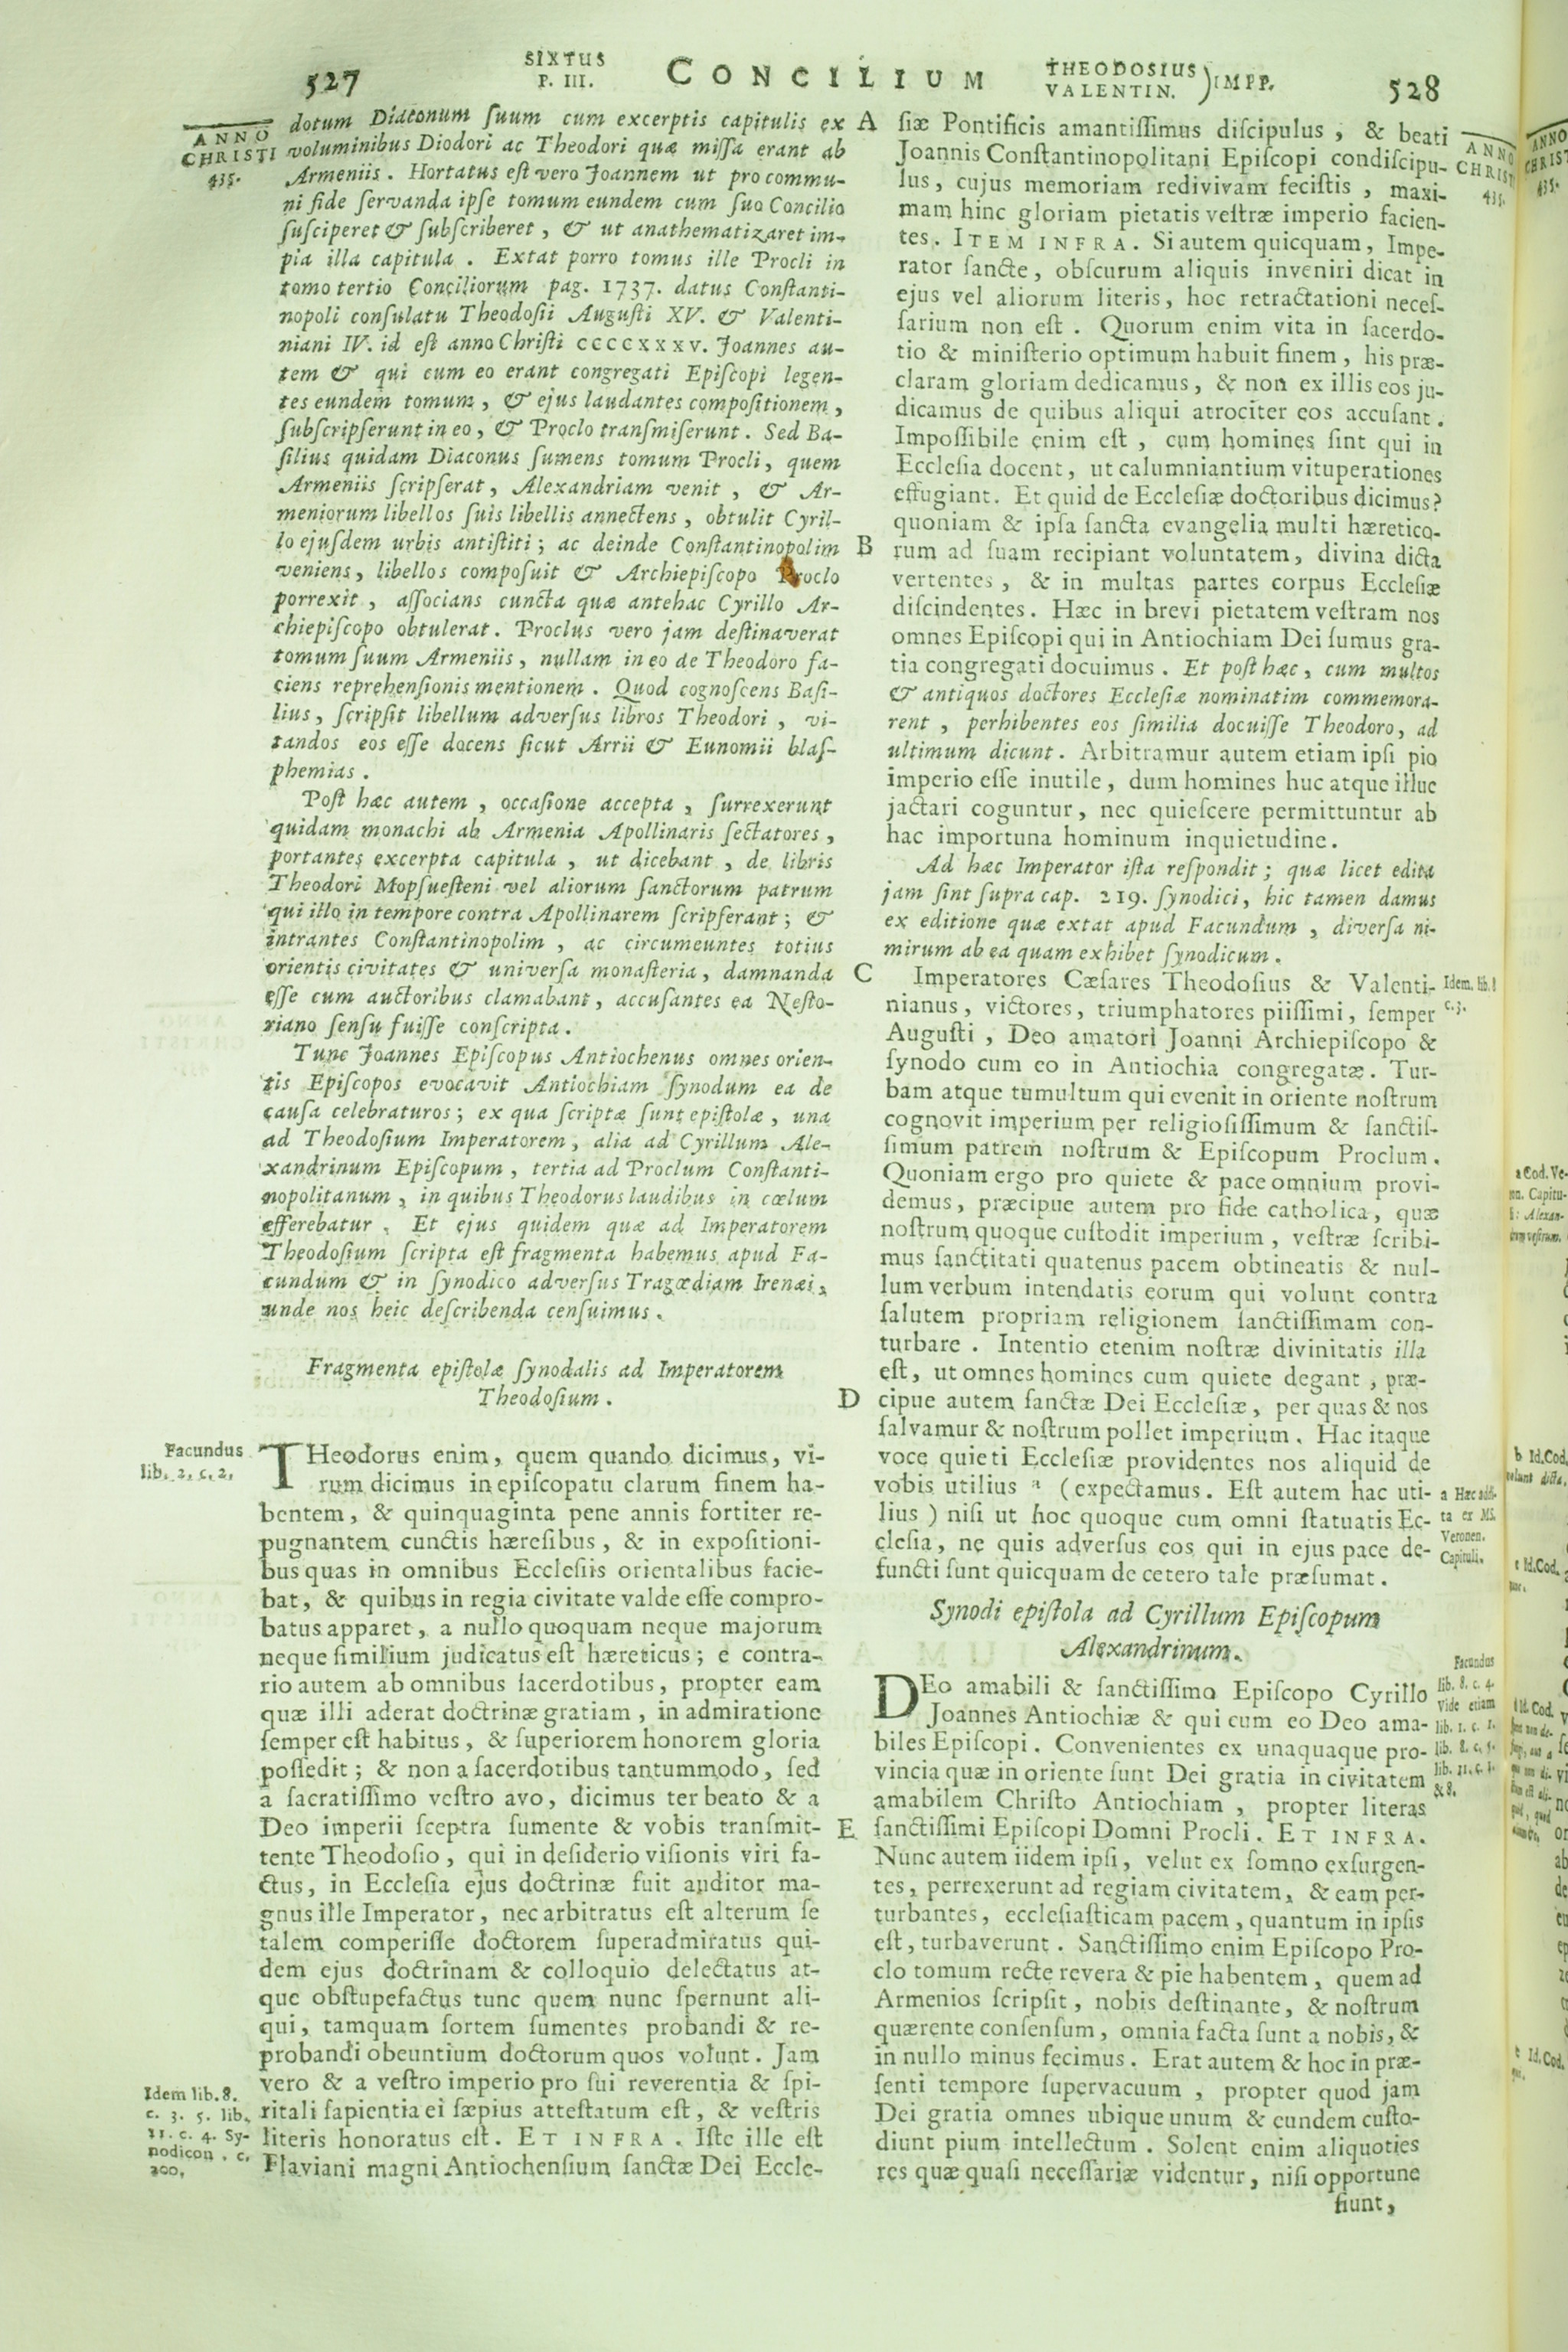 527
SIXTUS
P. III.
CONCILIUM
THEODOSIUS
VALENTIN. ) IMPP.
528
ANNO
CHRISTI
435.
dotum Diaconum ſuum cum excerptis capitulis ex
voluminibus Diodori ac Theodori quæ miſſa erant ab
Armeniis. Hortatus eſt vero Joannem ut pro commu-
ni fide ſervanda ipſe tomum eundem cum ſuo Concilio
ſuſciperet & ſubſcriberet, & ut anathematizaret im-
pia illa capitula. Extat porro tomus ille Procli in
tomo tertio Conciliorum pag. 1737. datus Conſtanti-
nopoli conſulatu Theodoſii Auguſti XV. & Valenti-
niani IV. id eſt anno Chriſti CCCCXXXV. Joannes au-
tem & qui cum eo erant congregati Epiſcopi legen-
tes eundem tomum, & ejus laudantes compoſitionem,
ſubſcripſerunt in eo, & Proclo tranſmiſerunt. Sed Ba-
ſilius quidam Diaconus ſumens tomum Procli, quem
Armeniis ſcripſerat, Alexandriam venit, & Ar-
meniorum libellos ſuis libellis annectens, obtulit Cyril-
lo ejuſdem urbis antiſtiti; ac deinde Conſtantinopolim
veniens, libellos compoſuit & Archiepiſcopo Proclo
porrexit, aſſocians cuncta quæ antehac Cyrillo Ar-
chiepiſcopo obtulerat. Proclus vero jam deſtinaverat
tomum ſuum Armeniis, nullam in eo de Theodoro fa-
ciens reprehenſionis mentionem. Quod cognoſcens Baſi-
lius, ſcripſit libellum adverſus libros Theodori, vi-
tandos eos eſſe docens ſicut Arrii & Eunomii blaſ-
phemias.
Poſt hæc autem, occaſione accepta, ſurrexerunt
quidam monachi ab Armenia Apollinaris ſectatores,
portantes excerpta capitula, ut dicebant, de libris
Theodori Mopſueſteni vel aliorum ſanctorum patrum
qui illo in tempore contra Apollinarem ſcripſerant; &
intrantes Conſtantinopolim, ac circumeuntes totius
orientis civitates & univerſa monaſteria, damnanda
eſſe cum auctoribus clamabant, accuſantes ea Neſto-
riano ſenſu fuiſſe conſcripta.
Tunc Joannes Epiſcopus Antiochenus omnes orien-
tis Epiſcopos evocavit Antiochiam ſynodum ea de
cauſa celebraturos; ex qua ſcriptæ ſunt epiſtolæ, una
ad Theodoſium Imperatorem, alia ad Cyrillum Ale-
xandrinum Epiſcopum, tertia ad Proclum Conſtanti-
nopolitanum, in quibus Theodorus laudibus in cœlum
efferebatur. Et ejus quidem quæ ad Imperatorem
Theodoſium ſcripta eſt fragmenta habemus apud Fa-
cundum & in ſynodico adverſus Tragœdiam Irenæi,
unde nos heic deſcribenda cenſuimus.
Fragmenta epiſtolæ ſynodalis ad Imperatorem
Theodoſium.
Facundus
lib. 2. c. 2.
THeodorus enim, quem quando dicimus, vi-
rum dicimus in epiſcopatu clarum finem ha-
bentem, & quinquaginta pene annis fortiter re-
pugnantem cunctis hæreſibus, & in expoſitioni-
bus quas in omnibus Eccleſiis orientalibus facie-
bat, & quibus in regia civitate valde eſſe compro-
batus apparet, a nullo quoquam neque majorum
neque ſimilium judicatus eſt hæreticus; e contra-
rio autem ab omnibus ſacerdotibus, propter eam
quæ illi aderat doctrinæ gratiam, in admiratione
ſemper eſt habitus, & ſuperiorem honorem gloria
poſſedit; & non a ſacerdotibus tantummodo, ſed
a ſacratiſſimo veſtro avo, dicimus ter beato & a
Deo imperii ſceptra ſumente & vobis tranſmit-
tente Theodoſio, qui in deſiderio viſionis viri fa-
ctus, in Eccleſia ejus doctrinæ fuit auditor ma-
gnus ille Imperator, nec arbitratus eſt alterum ſe
talem comperiſſe doctorem ſuperadmiratus qui-
dem ejus doctrinam & colloquio delectatus at-
que obſtupefactus tunc quem nunc ſpernunt ali-
qui, tamquam ſortem ſumentes probandi & re-
probandi obeuntium doctorum quos volunt. Jam
vero & a veſtro imperio pro ſui reverentia & ſpi-
ritali ſapientia ei ſæpius atteſtatum eſt, & veſtris
literis honoratus eſt. ET INFRA. Iſte ille eſt
Flaviani magni Antiochenſium ſanctæ Dei Eccle-
Idem lib. 8.
c. 3. 5. lib.
11. c. 4. Sy-
nodicon. c.
200.
A
B
C
D
E
ſiæ Pontificis amantiſſimus diſcipulus, & beati
Joannis Conſtantinopolitani Epiſcopi condiſcipu-
lus, cujus memoriam redivivam feciſtis, maxi-
mam hinc gloriam pietatis veſtræ imperio facien-
tes. ITEM INFRA. Si autem quicquam, Impe-
rator ſancte, obſcurum aliquis inveniri dicat in
ejus vel aliorum literis, hoc retractationi neceſ-
ſarium non eſt. Quorum enim vita in ſacerdo-
tio & miniſterio optimum habuit finem, his præ-
claram gloriam dedicamus, & non ex illis eos ju-
dicamus de quibus aliqui atrociter eos accuſant.
Impoſſibile enim eſt, cum homines ſint qui in
Eccleſia docent, ut calumniantium vituperationes
effugiant. Et quid de Eccleſiæ doctoribus dicimus?
quoniam & ipſa ſancta evangelia multi hæretico-
rum ad ſuam recipiant voluntatem, divina dicta
vertentes, & in multas partes corpus Eccleſiæ
diſcindentes. Hæc in brevi pietatem veſtram nos
omnes Epiſcopi qui in Antiochiam Dei ſumus gra-
tia congregati docuimus. Et poſt hæc, cum multos
& antiquos doctores Eccleſiæ nominatim commemora-
rent, perhibentes eos ſimilia docuiſſe Theodoro, ad
ultimum dicunt. Arbitramur autem etiam ipſi pio
imperio eſſe inutile, dum homines huc atque illuc
jactari coguntur, nec quieſcere permittuntur ab
hac importuna hominum inquietudine.
Ad hæc Imperator iſta reſpondit; quæ licet edita
jam ſint ſupra cap. 219. ſynodici, hic tamen damus
ex editione quæ extat apud Facundum, diverſa ni-
mirum ab ea quam exhibet ſynodicum.
Imperatores Cæſares Theodoſius & Valenti-
nianus, victores, triumphatores piiſſimi, ſemper
Auguſti, Deo amatori Joanni Archiepiſcopo &
ſynodo cum eo in Antiochia congregatæ. Tur-
bam atque tumultum qui evenit in oriente noſtrum
cognovit imperium per religioſiſſimum & ſanctiſ-
ſimum patrem noſtrum & Epiſcopum Proclum.
Quoniam ergo pro quiete & pace omnium provi-
demus, præcipue autem pro fide catholica, quæ
noſtrum quoque cuſtodit imperium, veſtræ ſcribi-
mus ſanctitati quatenus pacem obtineatis & nul-
lum verbum intendatis eorum qui volunt contra
ſalutem propriam religionem ſanctiſſimam con-
turbare. Intentio etenim noſtræ divinitatis illa
eſt, ut omnes homines cum quiete degant, præ-
cipue autem ſanctæ Dei Eccleſiæ, per quas & nos
ſalvamur & noſtrum pollet imperium. Hac itaque
voce quieti Eccleſiæ providentes nos aliquid de
vobis utilius a (expectamus. Eſt autem hac uti-
lius) niſi ut hoc quoque cum omni ſtatuatis Ec-
cleſia, ne quis adverſus eos qui in ejus pace de-
functi ſunt quicquam de cetero tale præſumat.
Synodi epiſtola ad Cyrillum Epiſcopum
Alexandrinum.
DEo amabili & ſanctiſſimo Epiſcopo Cyrillo
Joannes Antiochiæ & qui cum eo Deo ama-
biles Epiſcopi. Convenientes ex unaquaque pro-
vincia quæ in oriente ſunt Dei gratia in civitatem
amabilem Chriſto Antiochiam, propter literas
ſanctiſſimi Epiſcopi Domni Procli. ET INFRA.
Nunc autem iidem ipſi, velut ex ſomno exſurgen-
tes, perrexerunt ad regiam civitatem, & eam per-
turbantes, eccleſiaſticam pacem, quantum in ipſis
eſt, turbaverunt. Sanctiſſimo enim Epiſcopo Pro-
clo tomum recte revera & pie habentem, quem ad
Armenios ſcripſit, nobis deſtinante, & noſtrum
quærente conſenſum, omnia facta ſunt a nobis, &
in nullo minus fecimus. Erat autem & hoc in præ-
ſenti tempore ſupervacuum, propter quod jam
Dei gratia omnes ubique unum & eundem cuſto-
diunt pium intellectum. Solent enim aliquoties
res quæ quaſi neceſſariæ videntur, niſi opportune
fiunt,
ANNO
CHRIST
435.
Idem. lib. 8
c. 3.
a Hæc addi-
ta ex MS.
Veronen.
Capituli.
Facundus
lib. 8. c. 4.
Vide etiam
lib. 1. c. 1.
lib. 8. c. 5.
lib. 11. c. 1.
&8.
ANNO
CHRIST
435.
a Cod. Ve-
b Id. Cod.
c Id. Cod.
d Id. Cod.
e Id. Cod.